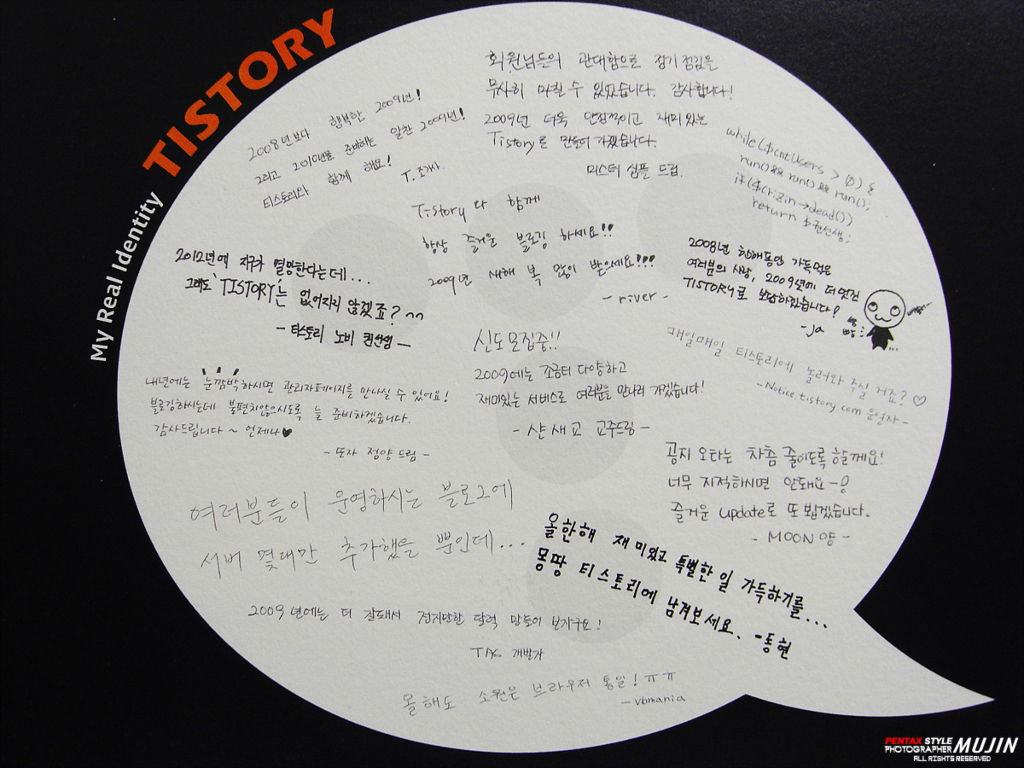 My Real Identity TISTORY
회원님들의 관대함으로 정기점검을
무사히 마칠 수 있었습니다. 감사합니다!
2009년 더욱 안정적이고 재미있는
Tistory로 만들어 가겠습니다.
미스터 심플 드림.
2008년보다 행복한 2009년!
그리고 2010년을 준비하는 알찬 2009년!
티스토리와 함께 해요!
T.조까.
while($cntUsers > 0) {
run() && run() && run();
if($crizin->dead())
return $권선생;
Tistory와 함께
항상 즐거운 블로깅 하세요!!
2009년 새해 복 많이 받으세요!!!
- river -
2012년에 지구가 멸망한다는데...
그래도 'TISTORY'는 없어지지 않겠죠? ^^
- 티스토리 노비
2008년 한해동안 가득했던
여러분의 사랑, 2009년에 더 멋진
TISTORY로 보답하겠습니다!
-ja
신도모집중!!
2009에는 조금더 다양하고
재미있는 서비스로 여러분을 만나러 가겠습니다!
- 샨새교 교주드림 -
매일매일 티스토리에 놀러와 주실 거죠? ♡
- Notice.tistory.com 운영자 -
내년에는 눈깜박하시면 관리자페이지를 만나실 수 있어요!
블로깅하시는데 불편치않으시도록 늘 준비하겠습니다.
감사드립니다 ~ 언제나♥
- 또자 정양 드림 -
공지 오타는 차츰 줄이도록 할께요!
너무 지적하시면 안돼요-!
즐거운 update로 또 뵙겠습니다.
- MOON양 -
여러분들이 운영하시는 블로그에
서버 몇대만 추가했을 뿐인데...
올한해 재미있고 특별한 일 가득하기를...
몽땅 티스토리에 남겨보세요. -동현
2009년에는 더 잘돼서 전지만한 달력 만들어 보자구요!
개발자
올해도 소원은 브라우저 통일! ㅠㅠ
- vbmania
PENTAX STYLE
PHOTOGRAPHER MUJIN
ALL RIGHTS RESERVED